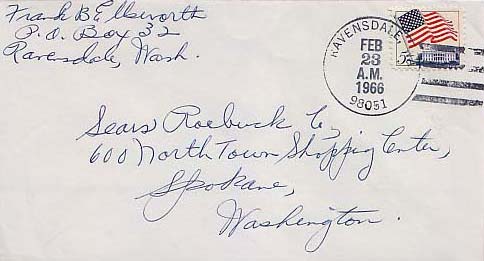 Frank B Ellsworth
P.O. Box 32
Ravensdale, Wash.
RAVENSDALE,
FEB
23
A.M.
1966
98051
5c
Sears Roebuck Co,
600 North Town Shopping Center,
Spokane,
Washington.